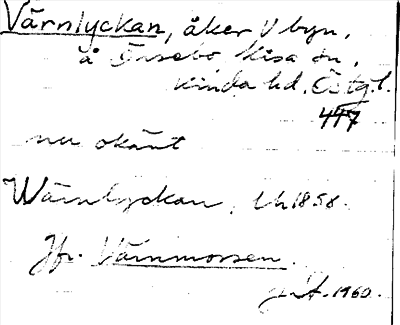 Värnlyckan, åker V byn,
å Kisa sn,
Kinda hd. Östgl.
417
nu okänt
Wärnlyckan, Lh 1858.
Jfr. Värnmossen.
1960.